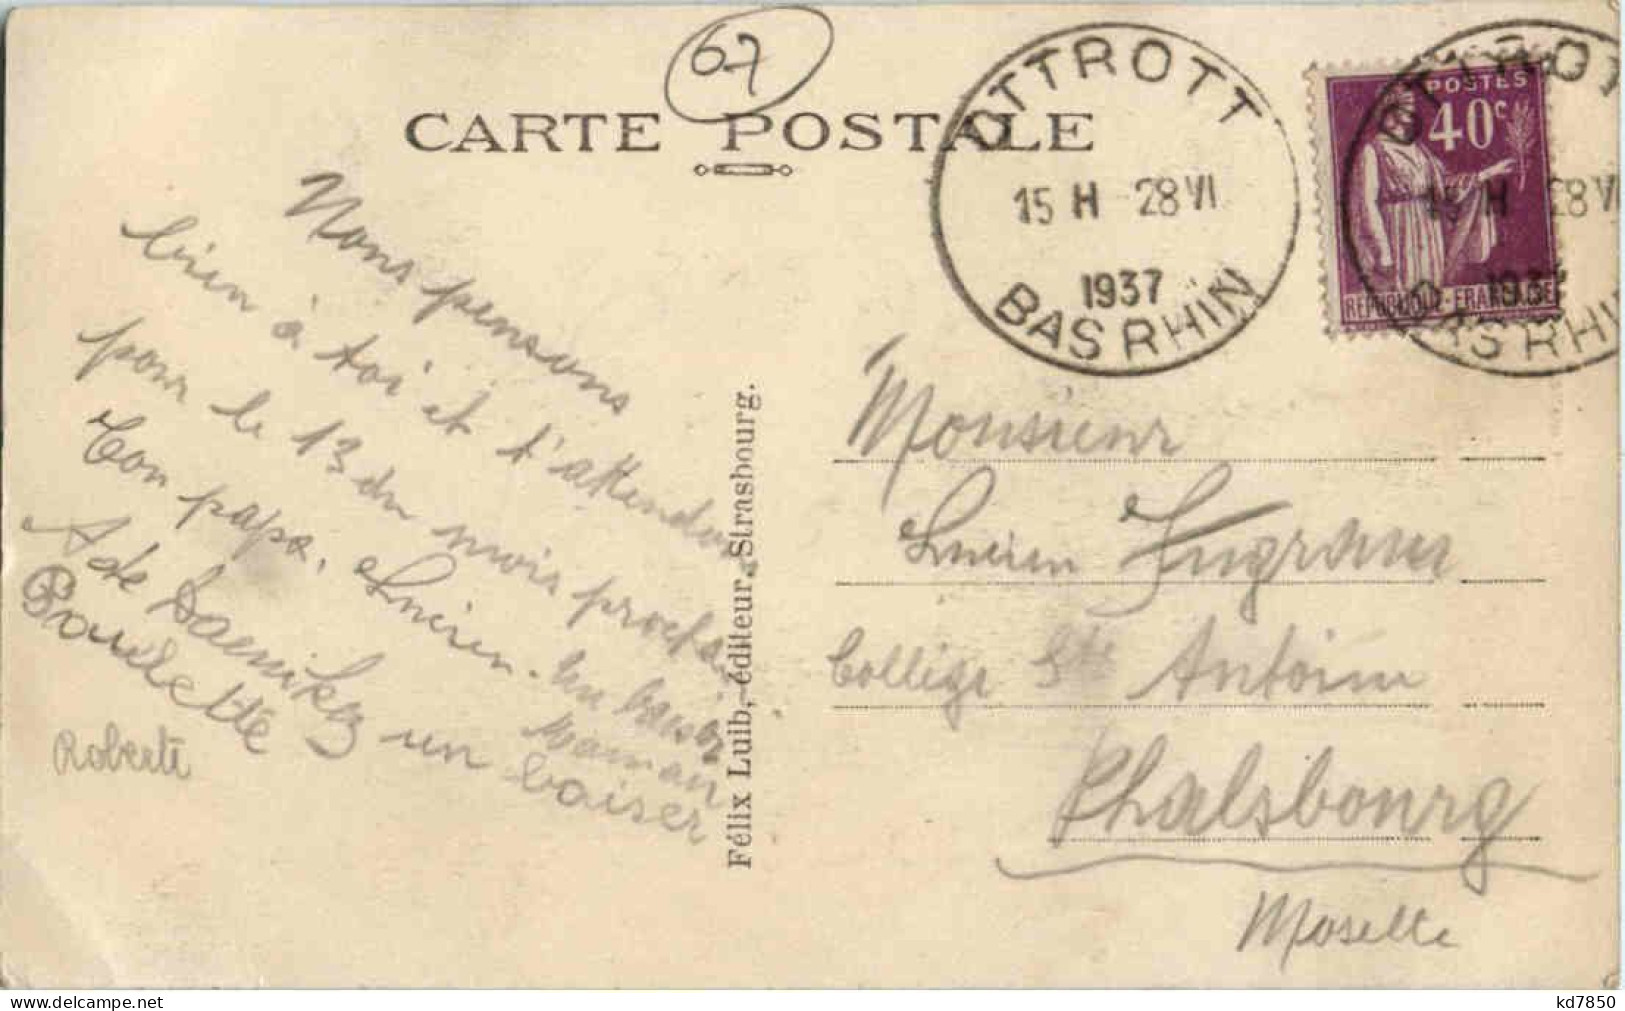 67
CARTE POSTALE
OTTROTT
15 H 28 VI
1937
BAS RHIN
POSTES
40c
REPUBLIQUE-FRANCAISE
OTTROT
15 H 28 VI
1937
BAS RHI
Nous pensons
bien à toi et t'attendons
pour le 13 du mois proch
Ton papa. Lucien. Un baiser
Maman
A de un baiser
Paulette
Roberte
Félix Luib, éditeur, Strasbourg.
Monsieur
Lucien Ingram
Collège St Antoine
Phalsbourg
Moselle
www.delcampe.net
kd7850